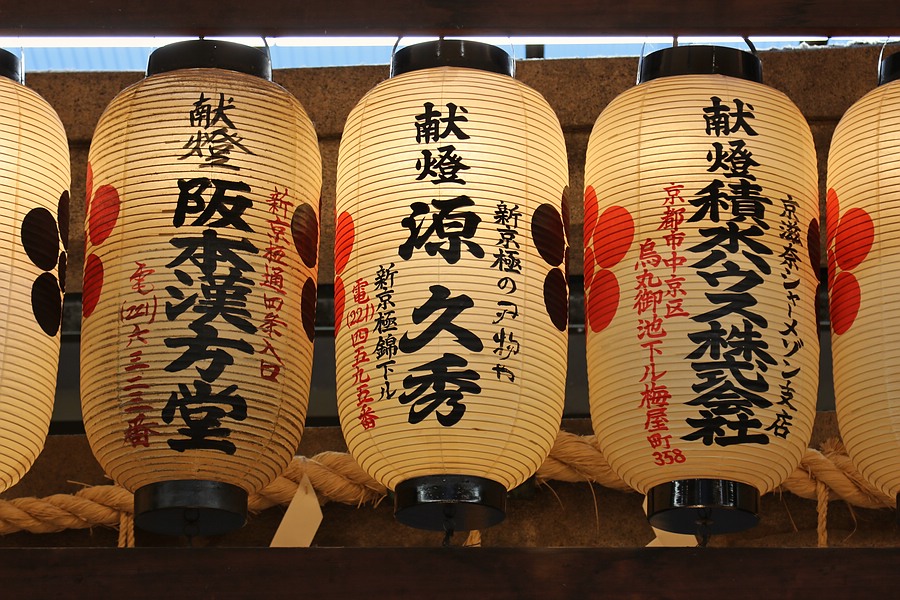 献燈
阪本漢方堂
新京極通四条入口
電(221)六三三三番
献燈
源久秀
新京極の刃物や
新京極錦下ル
電(221)四五九五番
献燈
積水ハウス株式会社
京滋奈シャーメゾン支店
京都市中京区
烏丸御池下ル梅屋町358